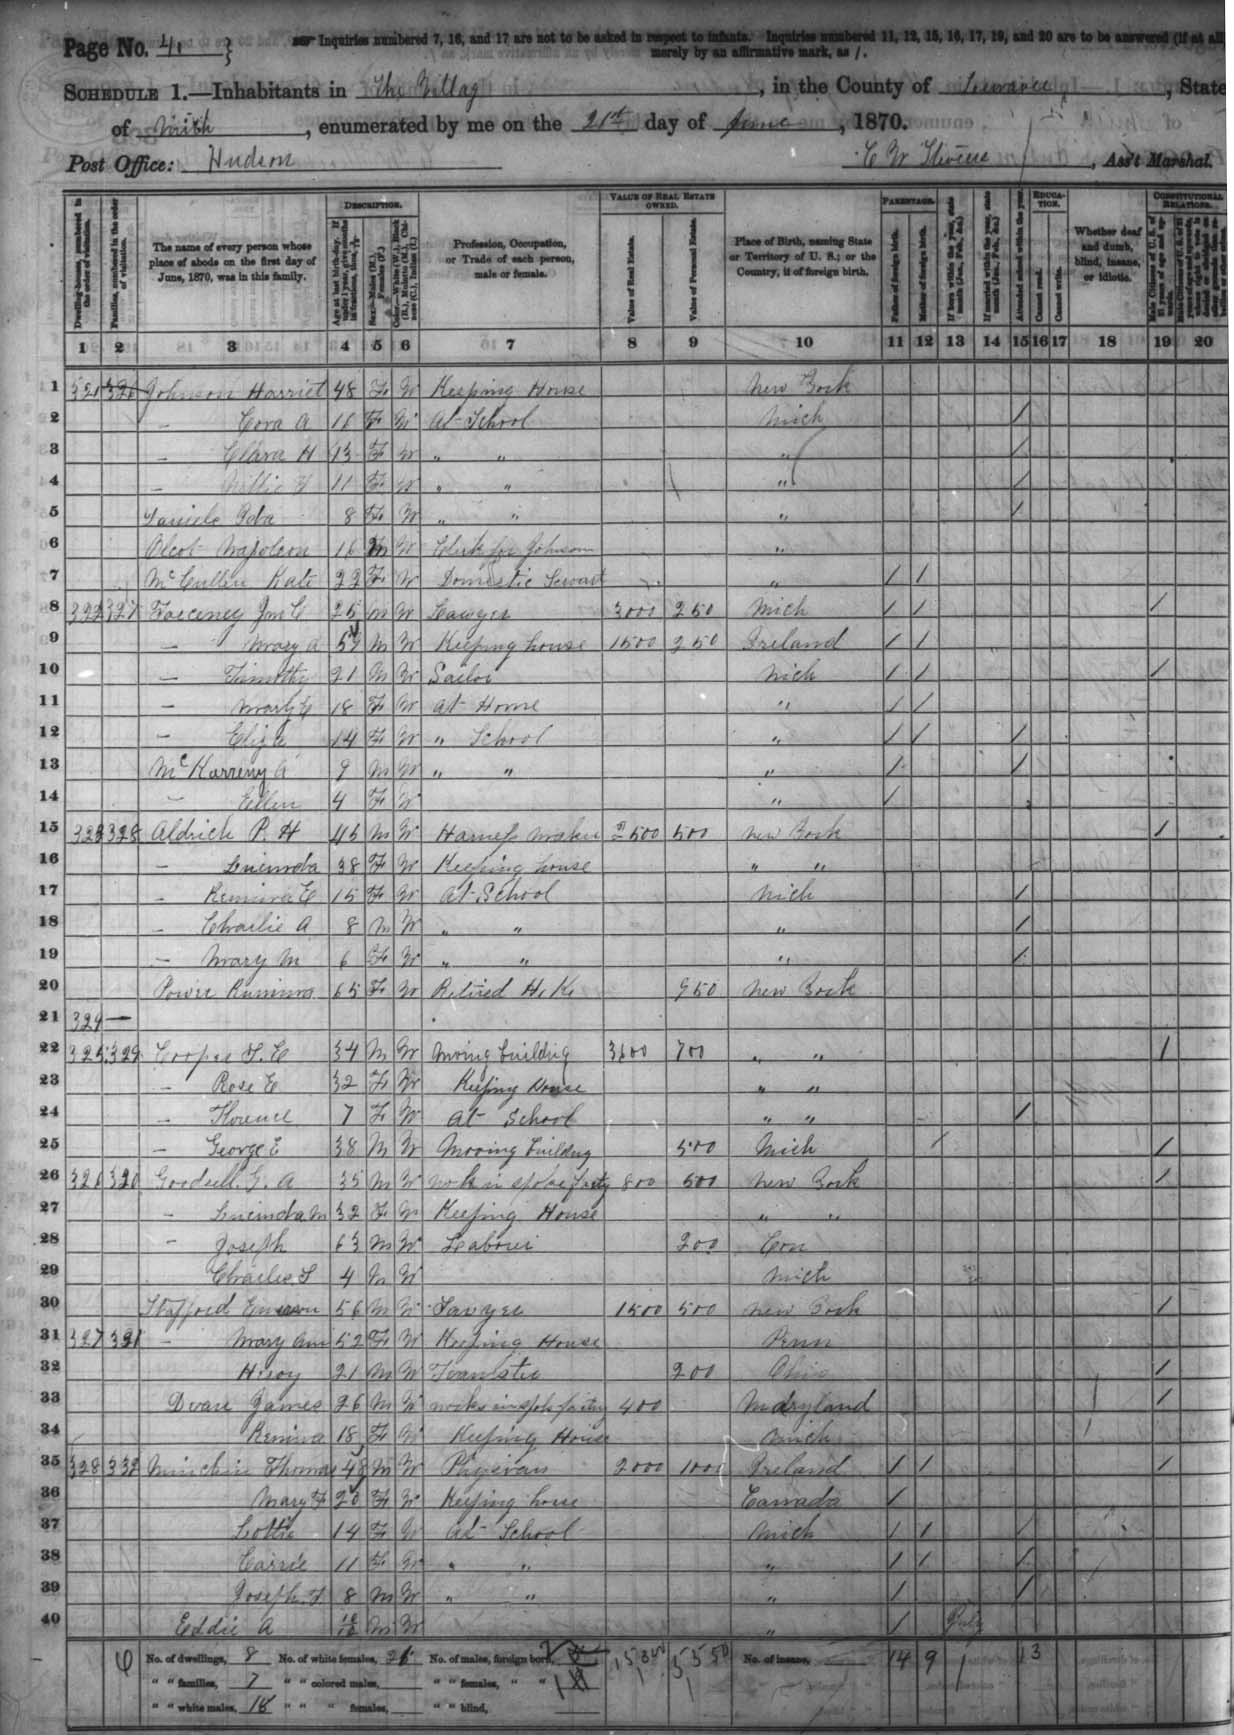 Page No. 41 } Inquiries numbered 7, 16, and 17 are not to be asked in respect to infants. Inquiries numbered 11, 12, 15, 16, 17, 19, and 20 are to be answered (if at all)
merely by an affirmative mark, as /.
SCHEDULE 1.—Inhabitants in The Village, in the County of Lenawee, State
of Mich, enumerated by me on the 21st day of June, 1870.
Post Office: Hudson C W Stevens, Ass't Marshal.
DESCRIPTION. VALUE OF REAL ESTATE OWNED. PARENTAGE. EDUCATION. CONSTITUTIONAL RELATIONS.
Dwelling-houses, numbered in the order of visitation.
Families, numbered in the order of visitation.
The name of every person whose place of abode on the first day of June, 1870, was in this family.
Age at last birth-day. If under 1 year, give months in fractions, thus,
Sex.—Males (M.), Females (F.)
Color.—White (W.), Black (B.), Mulatto (M.), Chinese (C.), Indian (I.)
Profession, Occupation, or Trade of each person, male or female.
Value of Real Estate.
Value of Personal Estate.
Place of Birth, naming State or Territory of U. S.; or the Country, if of foreign birth.
Father of foreign birth.
Mother of foreign birth.
If born within the year, state month (Jan., Feb., &c.)
If married within the year, state month (Jan., Feb., &c.)
Attended school within the year.
Cannot read.
Cannot write.
Whether deaf and dumb, blind, insane, or idiotic.
Male Citizens of U. S. of 21 years of age and upwards.
1 2 3 4 5 6 7 8 9 10 11 12 13 14 15 16 17 18 19 20
1 321 326 Johnson Harriet 48 F W Keeping House New York
2 — Cora A 16 F W At School Mich /
3 — Clara H 13 F W " " " /
4 — 11 F W " " " /
5 Ida 8 F W " " " /
6 Olcot Napoleon 16 M W Clerk for Johnson "
7 McCullen Kate 22 F W Domestic Servant " / /
8 322 327 Jno C 25 M W Lawyer 3000 250 Mich / / /
9 — Mary A 54 M W Keeping house 1500 250 Ireland / /
10 — Timothy 21 M W Sailor Mich / / /
11 — Mary E 18 F W At Home " / /
12 — Eliza 14 F W " School " / / /
13 McKarreny A 9 M W " " " / /
14 — Ellen 4 F W " /
15 323 328 Aldrich P. H 45 M W Harness Maker 2500 500 New York /
16 — Lucinda 38 F W Keeping house " "
17 — Remina E 15 F W At School Mich /
18 — Charlie A 8 M W " " " /
19 — Mary M 6 F W " " " /
20 Remina 65 F W Retired H. K. 950 New York
21 324 —
22 325 329 Cooper T. E 34 M W Moving building 3600 700 " " /
23 — Rose E 32 F W Keeping House " "
24 — Florence 7 F W At School " " /
25 — George E 38 M W Mooving building 500 Mich / /
26 326 330 Goodsell G. A 35 M W Work in spoke facty 800 500 New York /
27 — Lucinda M 32 F W Keeping House " "
28 — Joseph 63 M W Laborer 200 Con
29 Charles S 4 M W Mich
30 Stafford Emerson 56 M W Sawyer 1500 500 New York /
31 327 331 — Mary Ann 52 F W Keeping House Penn
32 21 M W Teamster 200 Ohio /
33 James 26 M W works in spok factry 400 Maryland /
34 Remina 18 F W Keeping House Mich
35 328 332 Minchin Thomas 48 M W Physician 2000 1000 Ireland / / /
36 Mary F 20 F W Keeping house Canada /
37 Lottie 14 F W At School Mich / / /
38 Carrie 11 F W " " " / / /
39 Joseph F 8 M W " " " / /
40 Eddie A M W " / July
No. of dwellings, 8 No. of white females, No. of males, foreign born, 2 15300 5550 No. of insane, 14 9 1 13
" " families, 7 " " colored males, " " females, " "
" " white males, 18 " " " females, " " blind,